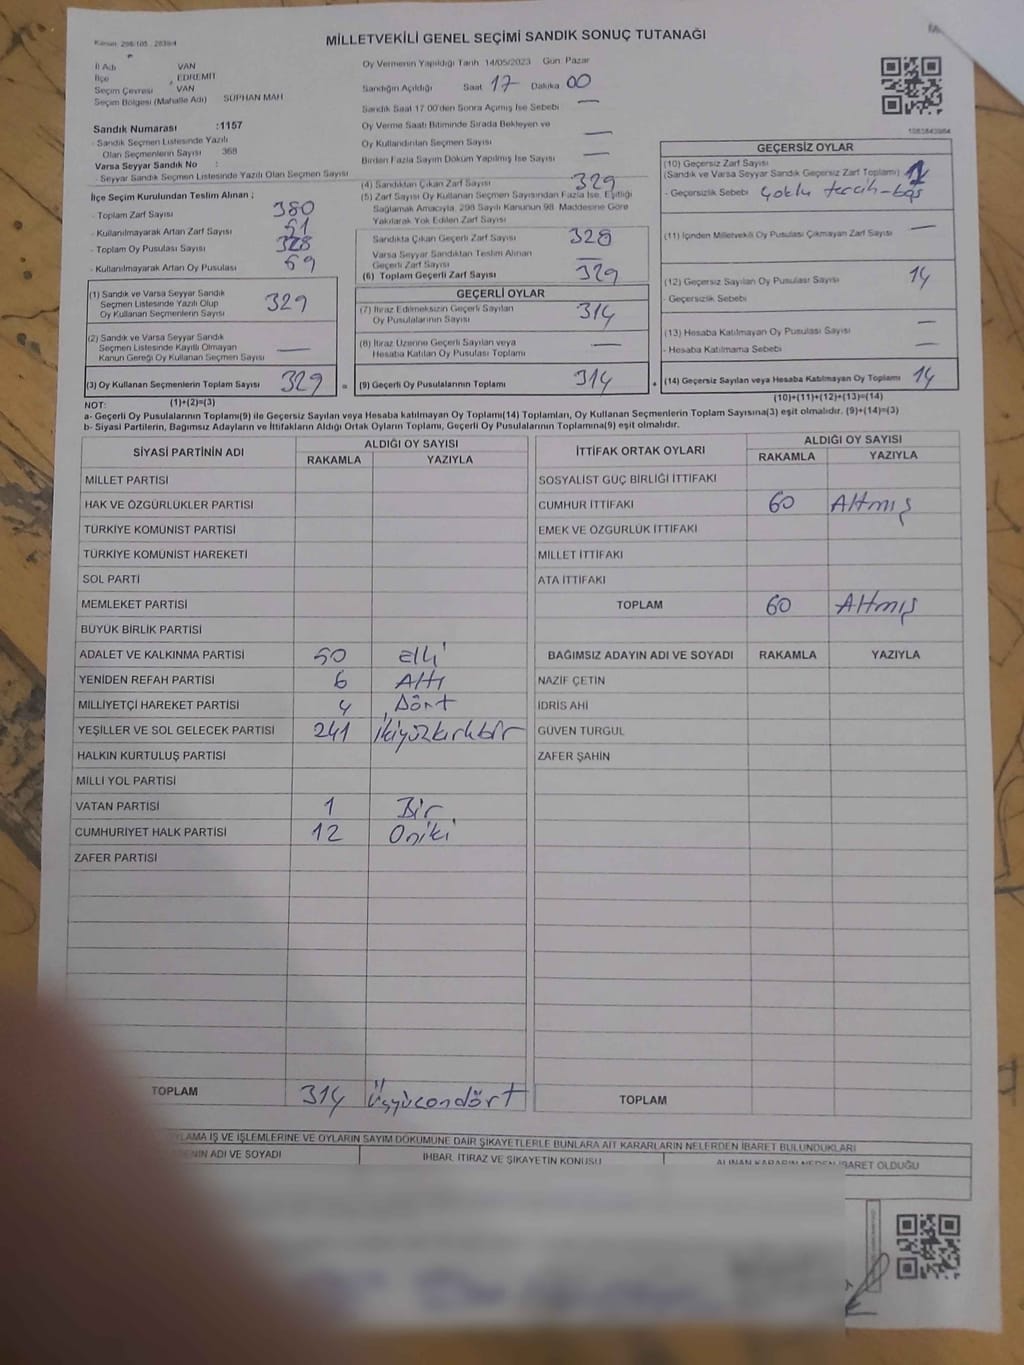 MİLLETVEKİLİ GENEL SEÇİMİ SANDIK SONUÇ TUTANAĞI
İl Adı VAN
İlçe EDREMİT
Seçim Çevresi VAN
Seçim Bölgesi (Mahalle Adı) SÜPHAN MAH
Sandık Numarası :1157
- Sandık Seçmen Listesinde Yazılı
Olan Seçmenlerin Sayısı 368
Varsa Seyyar Sandık No :
- Seyyar Sandık Seçmen Listesinde Yazılı Olan Seçmen Sayısı
İlçe Seçim Kurulundan Teslim Alınan ;
- Toplam Zarf Sayısı 380
- Kullanılmayarak Artan Zarf Sayısı 51
- Toplam Oy Pusulası Sayısı
- Kullanılmayarak Artan Oy Pusulası
(1) Sandık ve Varsa Seyyar Sandık
Seçmen Listesinde Yazılı Olup
Oy Kullanan Seçmenlerin Sayısı 329
(2) Sandık ve Varsa Seyyar Sandık
Seçmen Listesinde Kayıtlı Olmayan
Kanun Gereği Oy Kullanan Seçmen Sayısı —
(3) Oy Kullanan Seçmenlerin Toplam Sayısı 329
(1)+(2)=(3)
Oy Vermenin Yapıldığı Tarih 14/05/2023 Gün Pazar
Sandığın Açıldığı Saat 17 Dakika 00
Sandık Saat 17:00'den Sonra Açılmış İse Sebebi —
Oy Verme Saati Bitiminde Sırada Bekleyen ve
Oy Kullandırılan Seçmen Sayısı —
Birden Fazla Sayım Döküm Yapılmış İse Sayısı —
(4) Sandıktan Çıkan Zarf Sayısı 329
(5) Zarf Sayısı Oy Kullanan Seçmen Sayısından Fazla İse, Eşitliği
Sağlamak Amacıyla, 298 Sayılı Kanunun 98. Maddesine Göre
Yakılarak Yok Edilen Zarf Sayısı
Sandıkta Çıkan Geçerli Zarf Sayısı 328
Varsa Seyyar Sandıktan Teslim Alınan
Geçerli Zarf Sayısı —
(6) Toplam Geçerli Zarf Sayısı 329
GEÇERLİ OYLAR
(7) İtiraz Edilmeksizin Geçerli Sayılan
Oy Pusulalarının Sayısı 314
(8) İtiraz Üzerine Geçerli Sayılan veya
Hesaba Katılan Oy Pusulası Toplamı —
= (9) Geçerli Oy Pusulalarının Toplamı 314
GEÇERSİZ OYLAR
(10) Geçersiz Zarf Sayısı
(Sandık ve Varsa Seyyar Sandık Geçersiz Zarf Toplamı)
- Geçersizlik Sebebi çoklu tercih-boş
(11) İçinden Milletvekili Oy Pusulası Çıkmayan Zarf Sayısı —
(12) Geçersiz Sayılan Oy Pusulası Sayısı 14
- Geçersizlik Sebebi
(13) Hesaba Katılmayan Oy Pusulası Sayısı —
- Hesaba Katılmama Sebebi —
(14) Geçersiz Sayılan veya Hesaba Katılmayan Oy Toplamı 14
(10)+(11)+(12)+(13)=(14)
NOT:
a- Geçerli Oy Pusulalarının Toplamı(9) ile Geçersiz Sayılan veya Hesaba katılmayan Oy Toplamı(14) Toplamları, Oy Kullanan Seçmenlerin Toplam Sayısına(3) eşit olmalıdır. (9)+(14)=(3)
b- Siyasi Partilerin, Bağımsız Adayların ve İttifakların Aldığı Ortak Oyların Toplamı, Geçerli Oy Pusulalarının Toplamına(9) eşit olmalıdır.
SİYASİ PARTİNİN ADI ALDIĞI OY SAYISI
RAKAMLA YAZIYLA
MİLLET PARTİSİ
HAK VE ÖZGÜRLÜKLER PARTİSİ
TÜRKİYE KOMÜNİST PARTİSİ
TÜRKİYE KOMÜNİST HAREKETİ
SOL PARTİ
MEMLEKET PARTİSİ
BÜYÜK BİRLİK PARTİSİ
ADALET VE KALKINMA PARTİSİ 50 elli
YENİDEN REFAH PARTİSİ 6 Altı
MİLLİYETÇİ HAREKET PARTİSİ 4 Dört
YEŞİLLER VE SOL GELECEK PARTİSİ 241 ikiyüzkırkbir
HALKIN KURTULUŞ PARTİSİ
MİLLİ YOL PARTİSİ
VATAN PARTİSİ 1 Bir
CUMHURİYET HALK PARTİSİ 12 Oniki
ZAFER PARTİSİ
TOPLAM 314 Üçyücondört
İTTİFAK ORTAK OYLARI ALDIĞI OY SAYISI
RAKAMLA YAZIYLA
SOSYALİST GÜÇ BİRLİĞİ İTTİFAKI
CUMHUR İTTİFAKI 60 Altmış
EMEK VE ÖZGÜRLÜK İTTİFAKI
MİLLET İTTİFAKI
ATA İTTİFAKI
TOPLAM 60 Altmış
BAĞIMSIZ ADAYIN ADI VE SOYADI RAKAMLA YAZIYLA
NAZİF ÇETİN
İDRİS AHİ
GÜVEN TURGUL
ZAFER ŞAHİN
TOPLAM
İŞ VE İŞLEMLERİNE VE OYLARIN SAYIM DÖKÜMÜNE DAİR ŞİKAYETLERLE BUNLARA AİT KARARLARIN NELERDEN İBARET BULUNDUKLARI
ADI VE SOYADI İHBAR, İTİRAZ VE ŞİKAYETİN KONUSU ALINAN KARARIN NEDEN İBARET OLDUĞU